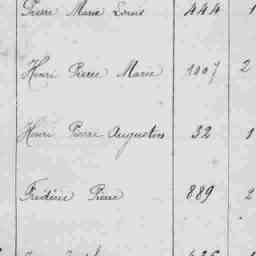 Pierre Marie Louis 444 1
Henri Pierre Marie 1007 2
Henri Pierre Augustin 32 1
Frédéric Pierre 889 2